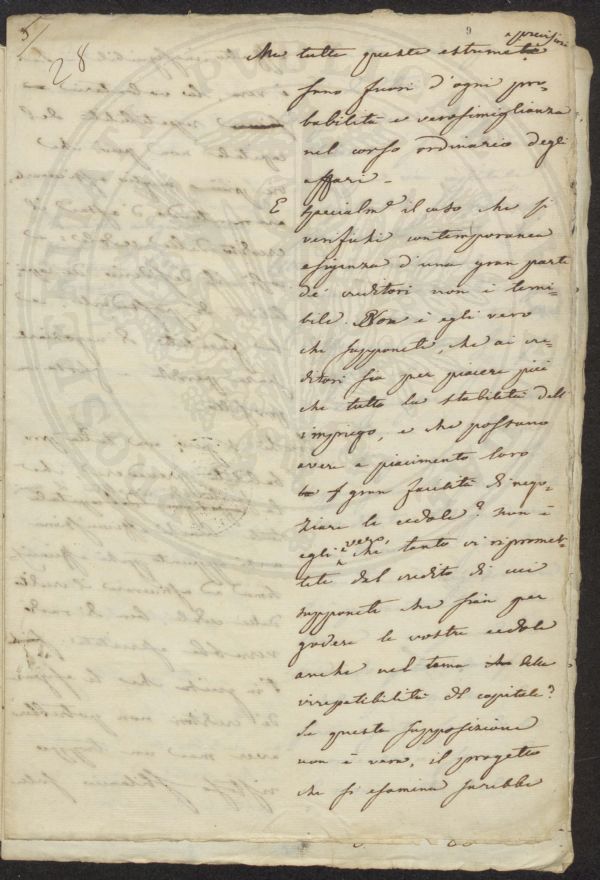 5/
28
9
e previsioni
Ma tutte queste estreme
sono fuori d'ogni pro-
babilità e verosimiglianza
nel corso ordinario degli
affari -
E specialm.e il caso che si
verifichi contemporanea
esigenza d'una gran parte
dei creditori non è temi-
bile. Non è egli vero
che supponete, che ai cre-
ditori sia per piacere più
che tutto la stabilità dell
impiego, e che possano
avere a piacimento loro
gran facilità di nego-
ziare le cedole? non è
egli vero, che tanto vi ripromet-
tete dal credito di cui
supponete che sian per
godere le vostre cedole
anche nel tema della
irrepetibilità del capitale?
Se questa supposizione
non è vera, il progetto
che si esamina sarebbe